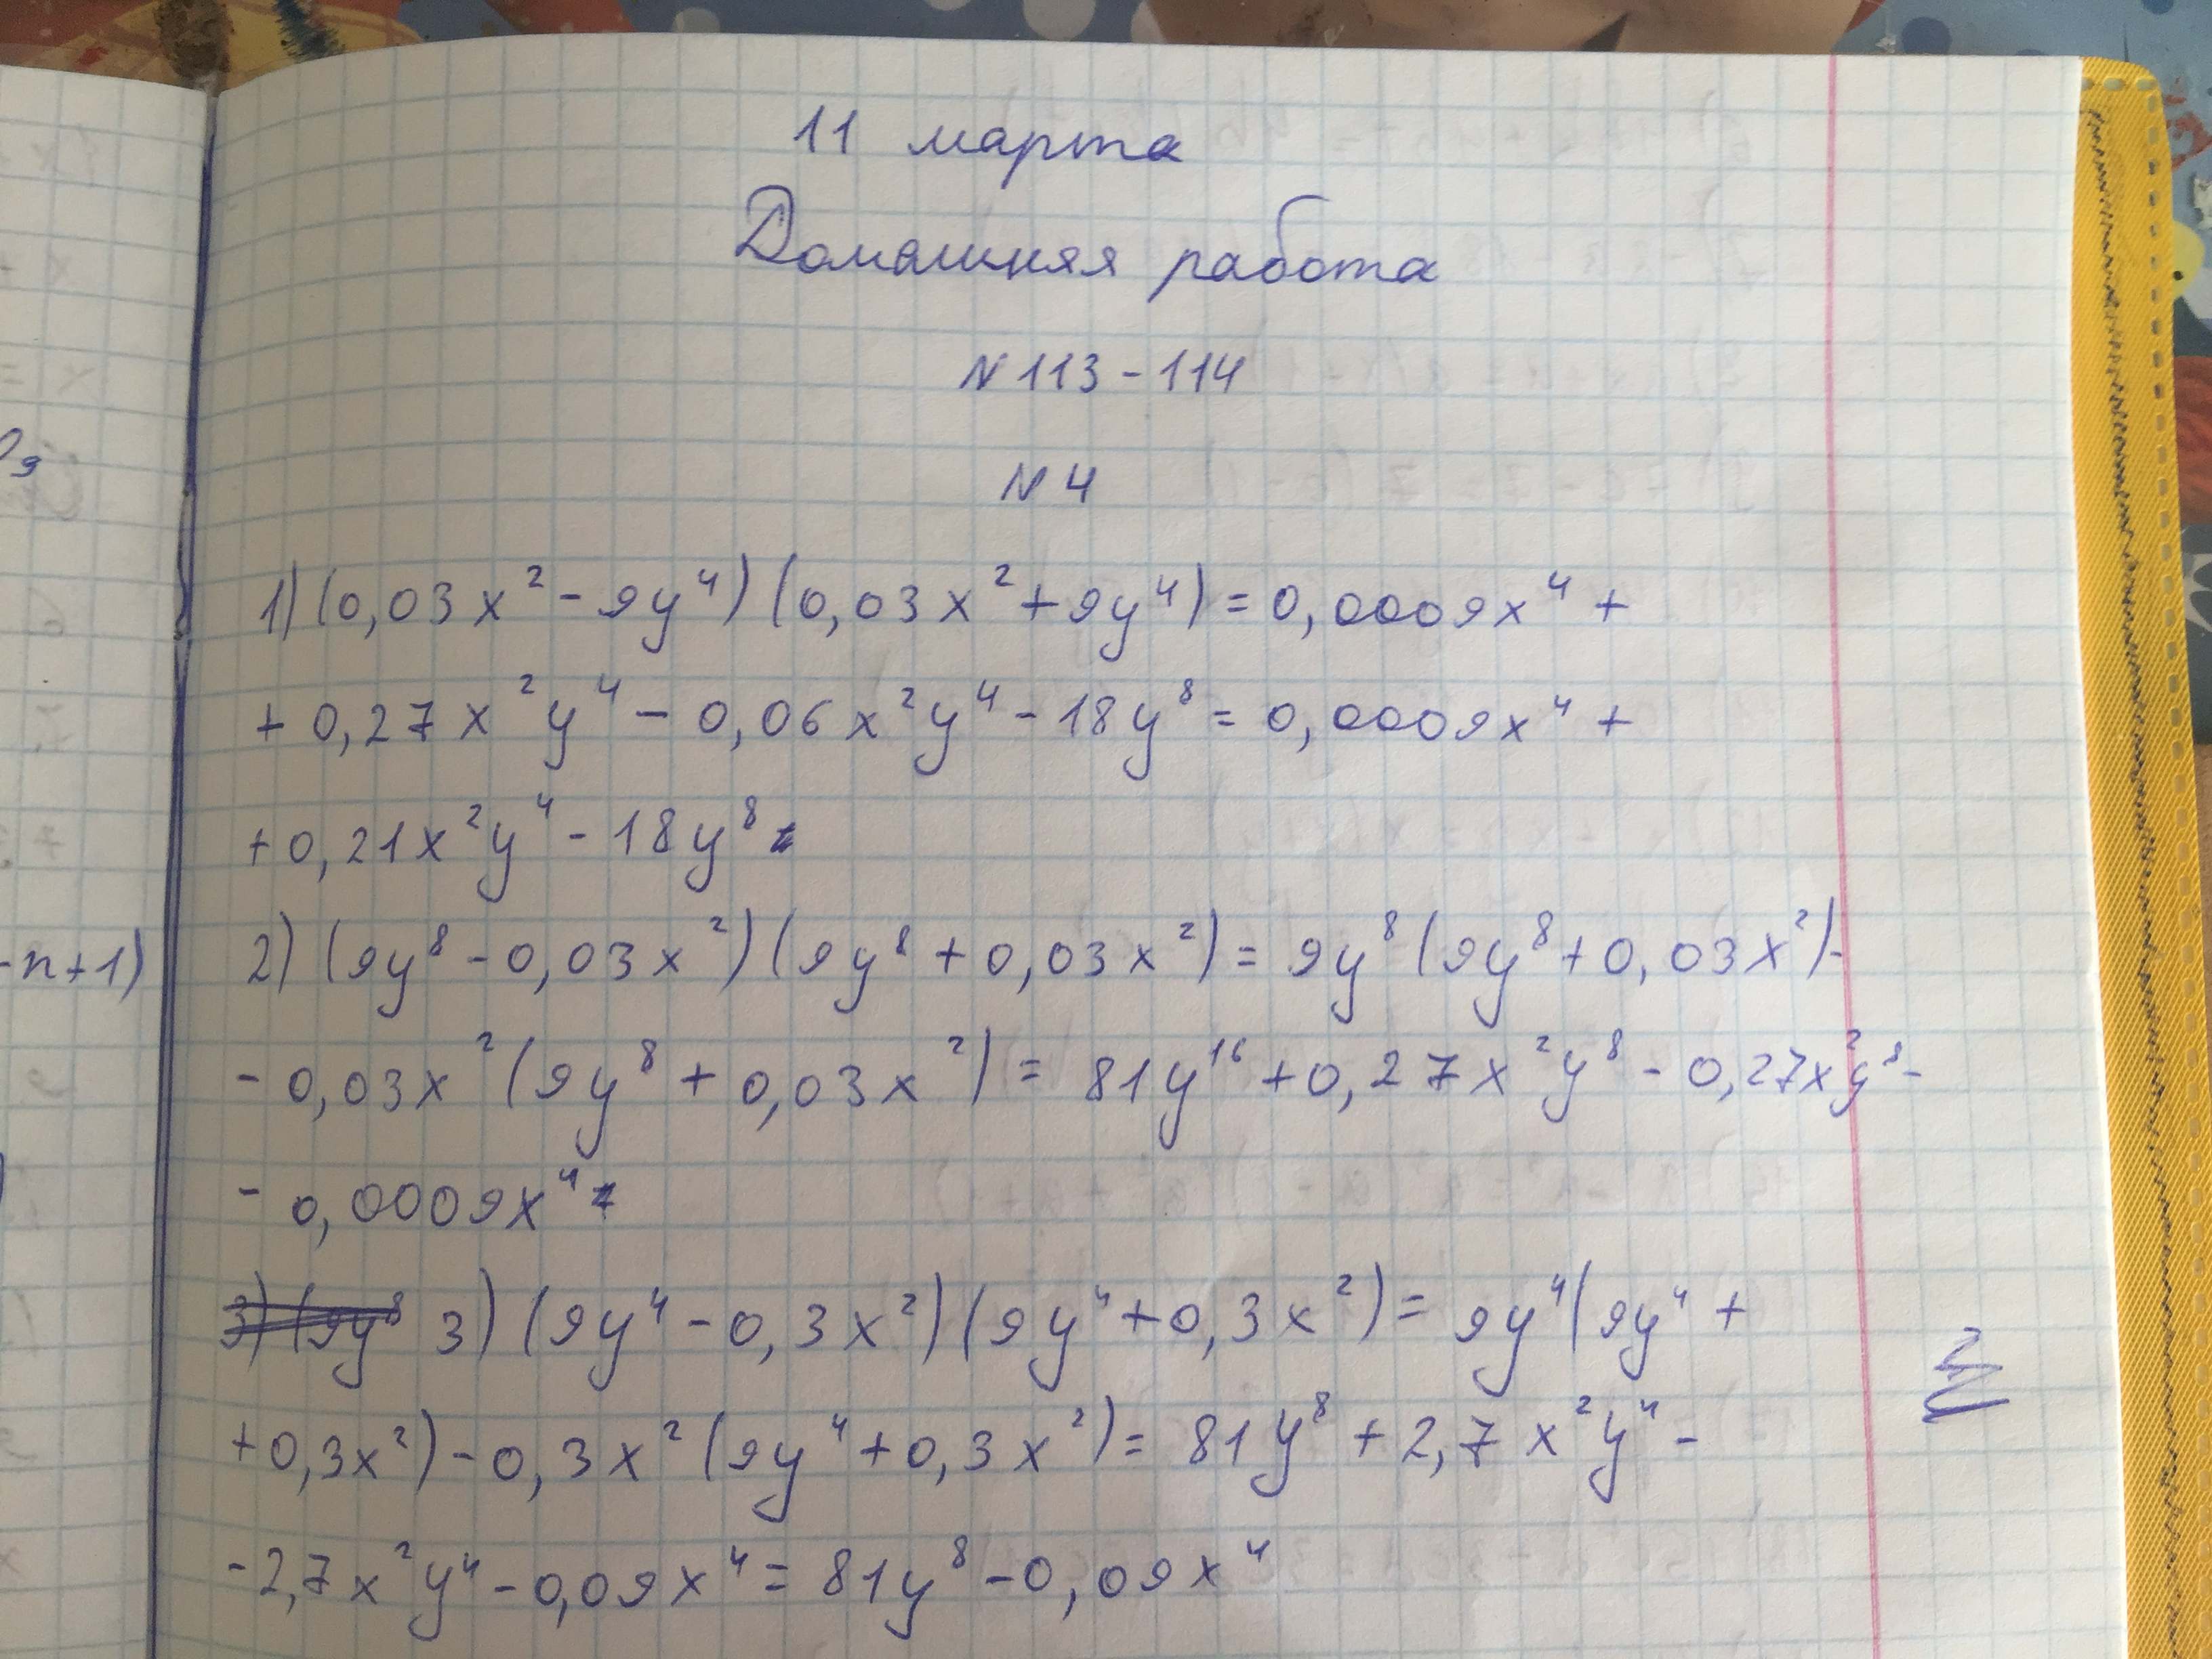 11 марта
Домашняя работа
N 113 - 114
N 4
1) (0,03x² - 9y⁴) (0,03x² + 9y⁴) = 0,0009x⁴ +
+ 0,27x²y⁴ - 0,06x²y⁴ - 18y⁸ = 0,0009x⁴ +
+ 0,21x²y⁴ - 18y⁸
-n+1)
2) (9y⁸ - 0,03x²) (9y⁸ + 0,03x²) = 9y⁸ (9y⁸ + 0,03x²) -
- 0,03x² (9y⁸ + 0,03x²) = 81y¹⁶ + 0,27x²y⁸ - 0,27x²y⁸ -
- 0,0009x⁴
3) (9y⁸ 3) (9y⁴ - 0,3x²) (9y⁴ + 0,3x²) = 9y⁴ (9y⁴ +
+ 0,3x²) - 0,3x² (9y⁴ + 0,3x²) = 81y⁸ + 2,7x²y⁴ -
- 2,7x²y⁴ - 0,09x⁴ = 81y⁸ - 0,09x⁴